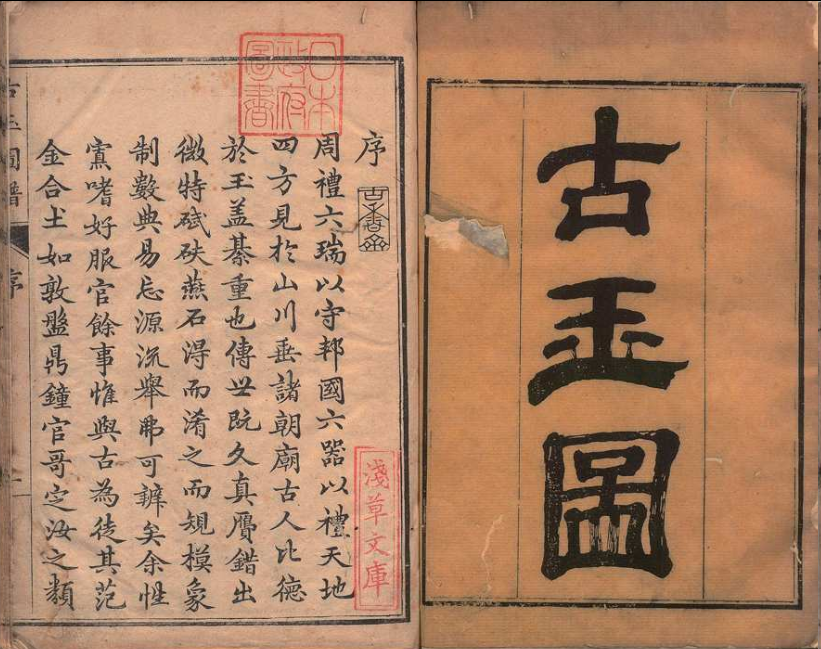 古玉圖
序
日本
政府
圖書
周禮六瑞以守邦國六器以禮天地
四方見於山川垂諸朝廟古人比德
於玉盖綦重也傳世既久真贗錯出
微特碔砆燕石淂而淆之而規模象
制數典易忘源流舉弗可辨矣余性
寡嗜好服官餘事惟與古為徒其范
金合土如敦盤鼎鐘官哥定汝之類
淺草文庫
古玉圖譜
序